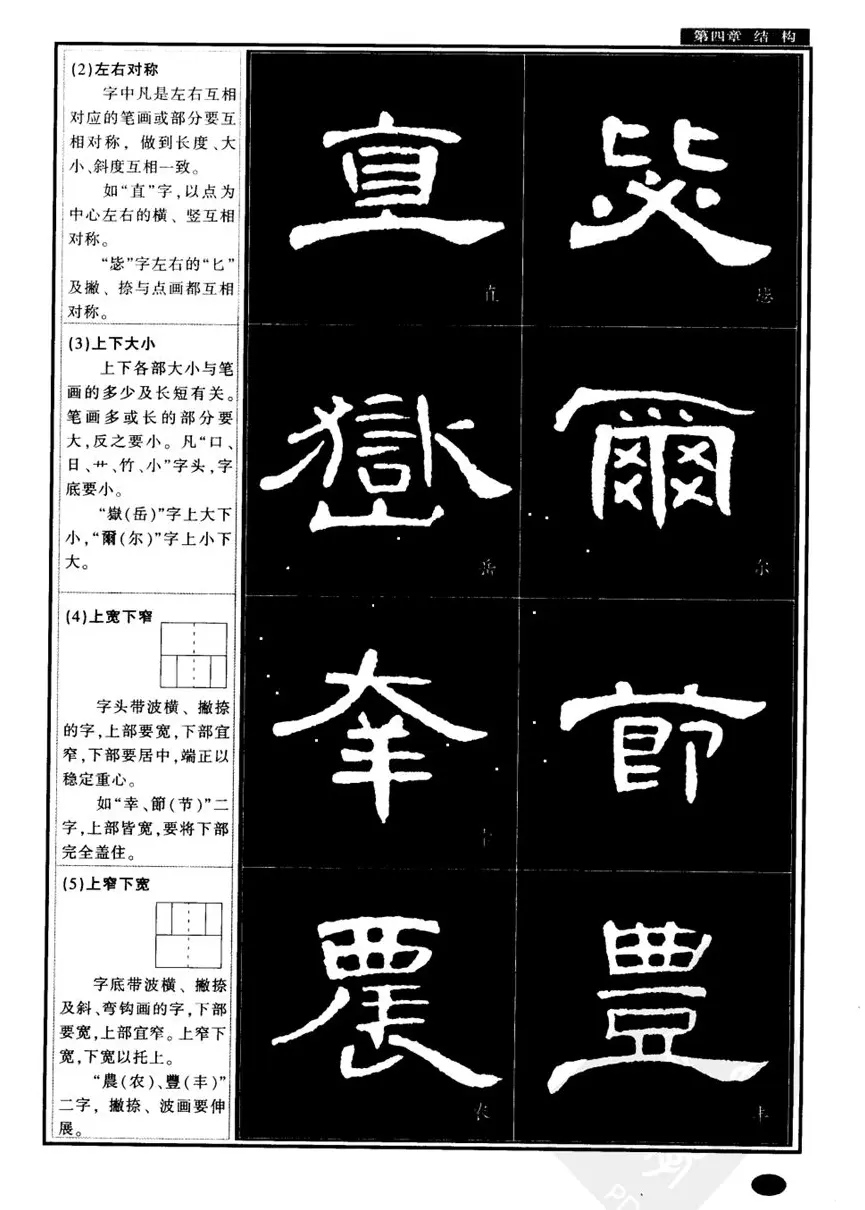 第四章 结 构
(2)左右对称
字中凡是左右互相
对应的笔画或部分要互
相对称，做到长度、大
小、斜度互相一致。
如“直”字，以点为
中心左右的横、竖互相
对称。
“毖”字左右的“匕”
及撇、捺与点画都互相
对称。
直
毖
直
毖
(3)上下大小
上下各部大小与笔
画的多少及长短有关。
笔画多或长的部分要
大，反之要小。凡“口、
日、艹、竹、小”字头，字
底要小。
“嶽(岳)”字上大下
小，“爾(尔)”字上小下
大。
嶽
爾
岳
尔
(4)上宽下窄
字头带波横、撇捺
的字，上部要宽，下部宜
窄，下部要居中，端正以
稳定重心。
如“幸、節(节)”二
字，上部皆宽，要将下部
完全盖住。
幸
節
(5)上窄下宽
字底带波横、撇捺
及斜、弯钩画的字，下部
要宽，上部宜窄。上窄下
宽，下宽以托上。
“農(农)、豐(丰)”
二字，撇捺、波画要伸
展。
農
豐
农
丰